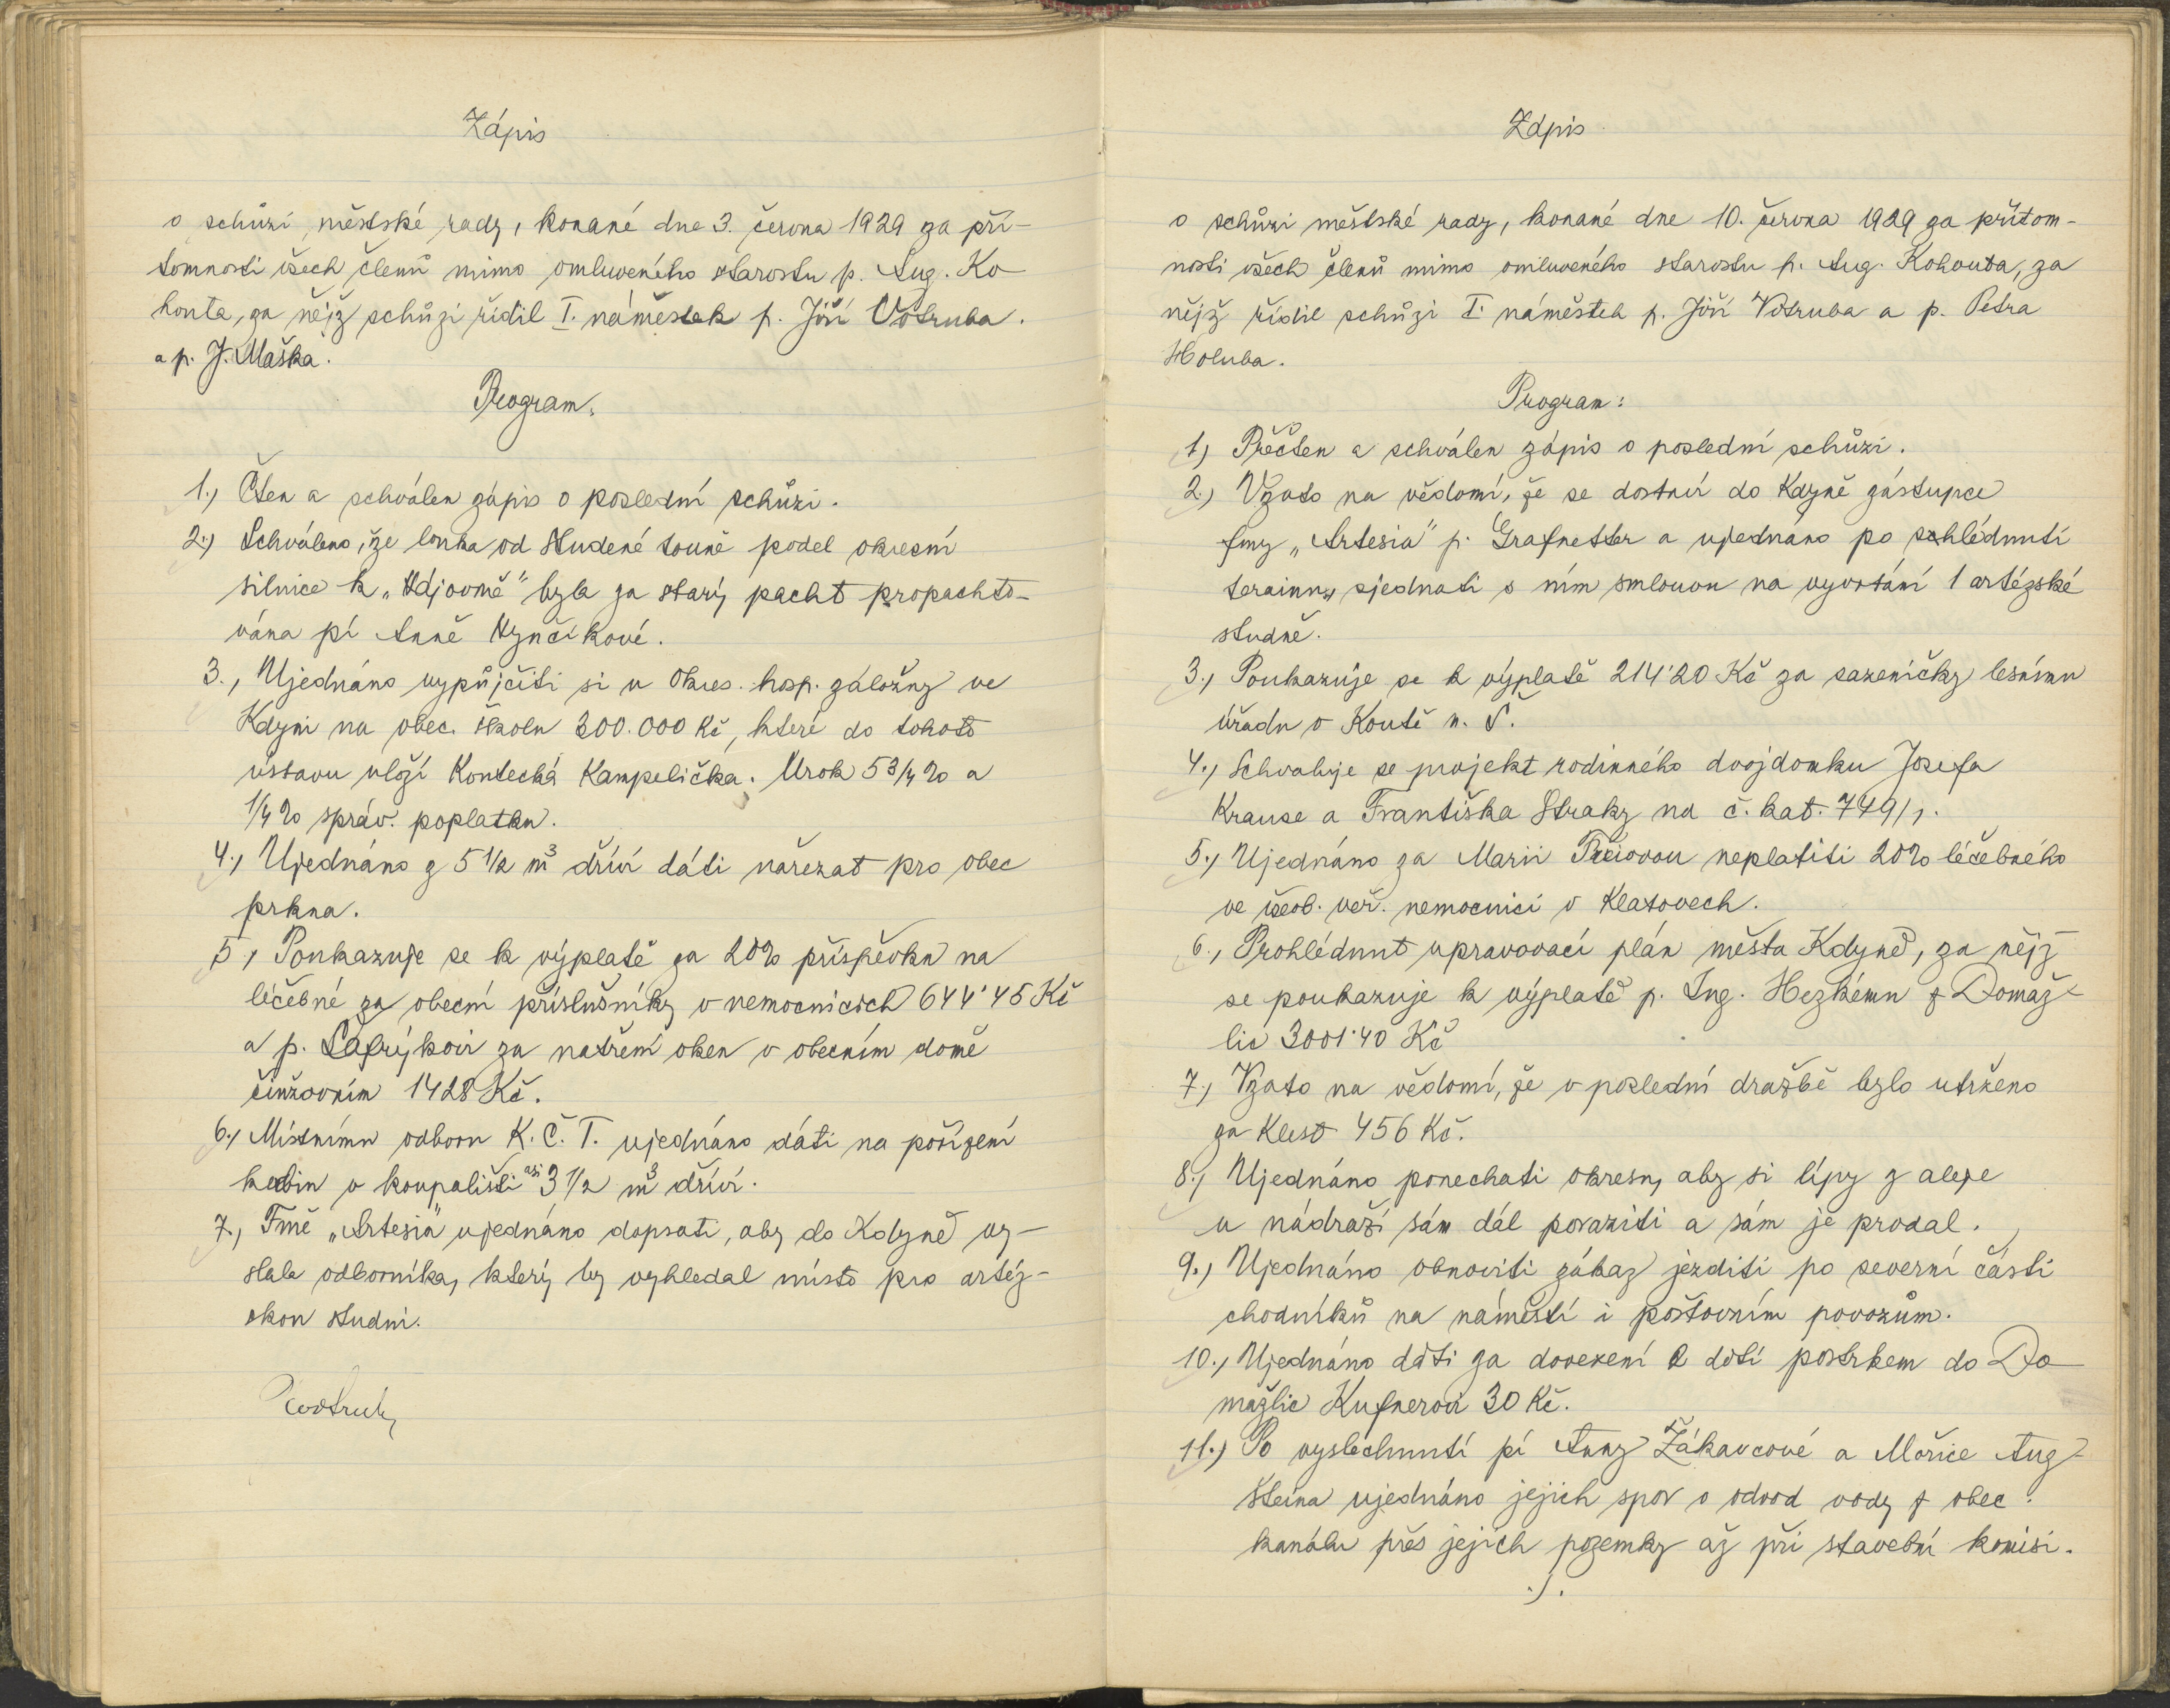 Zápis
o schůzi městské rady, konané dne 3. června 1929 za pří-
tomnosti všech členů mimo omluveného starostu p. Aug. Ko
houta, za nějž schůzi řídil I. náměstek p. Jiří Votruba.
a p. J. Maška.
Program.
1.) Čten a schválen zápis o poslední schůzi.
2.) Schváleno, že louka od Studené touně podel okresní
silnice k „Hájovně" byla za starý pacht propachto-
vána pí Anně Hynčíkové.
3., Ujednáno vypůjčiti si u Okres. hosp. záložny ve
Kdyni na obec. školu 300.000 Kč, které do tohoto
ústavu vloží Koutecká Kampelička. Úrok 5 3/4 % a
1/4 % správ. poplatku.
4., Ujednáno z 5 1/2 m³ dříví dáti nařezat pro obec
prkna.
5, Poukazuje se k výplatě za 20% příspěvku na
léčebné za obecní příslušníky v nemocnicích 644'45 Kč
a p. Šafrýkovi za natření oken v obecním domě
činžovním 1428 Kč.
6., Místnímu odboru K. Č. T. ujednáno dáti na pořízení
kabin v koupališti asi 3 1/2 m³ dříví.
7., Fmě „Artesia" ujednáno dopsati, aby do Kdyně vy-
slala odborníka, který by vyhledal místo pro artéz-
skou studni.
Votruba
Zápis
o schůzi městské rady, konané dne 10. června 1929 za přítom-
nosti všech členů mimo omluveného starostu p. Aug. Kohouta, za
nějž řídil schůzi I. náměstek p. Jiří Votruba a p. Petra
Holuba.
Program:
1) Přečten a schválen zápis o poslední schůzi.
2.) Vzato na vědomí, že se dostaví do Kdyně zástupce
fmy „Artesia" p. Grafnetter a ujednáno po shlédnutí
terainu, sjednati s ním smlouvu na vyvrtání 1 artézské
studně.
3., Poukazuje se k výplatě 214'20 Kč za sazeničky lesnímu
úřadu v Koutě n. Š.
4., Schvaluje se projekt rodinného dvojdomku Josefa
Krause a Františka Straky na č. kat. 749/1.
5., Ujednáno za Marii neplatiti 20% léčebného
ve všeob. veř. nemocnici v Klatovech.
6., Prohlédnut upravovací plán města Kdyně, za nějž
se poukazuje k výplatě p. Ing. Hezkému z Domaž-
lic 3001'40 Kč
7., Vzato na vědomí, že v poslední dražbě bylo utrženo
za klest 456 Kč.
8., Ujednáno ponechati okresu, aby si lípy z aleje
u nádraží sám dál poraziti a sám je prodal.
9., Ujednáno obnoviti zákaz jezditi po severní části
chodníků na náměstí i poštovním povozům.
10., Ujednáno dáti za dovezení 2 dětí postrkem do Do
mažlic Kufnerovi 30 Kč.
11.) Po vyslechnutí pí Anny Žákavcové a Mořice Aug-
šteina ujednáno jejich spor o odvod vody z obec.
kanálu přes jejich pozemky až při stavební komisi.
./.